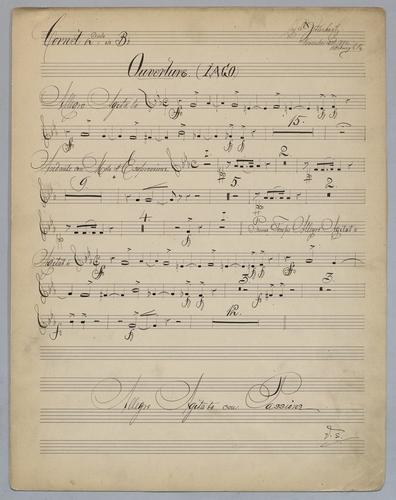 Cornet 2do in Bb
Ouverture. (IAGO)
Allegro Agitato
15.
Andante con Molto Espressione
2
9 5 2
4 Primo Tempo Allegro Agitato
Agitato
3 3
12.
Allegro Agitato con Passione